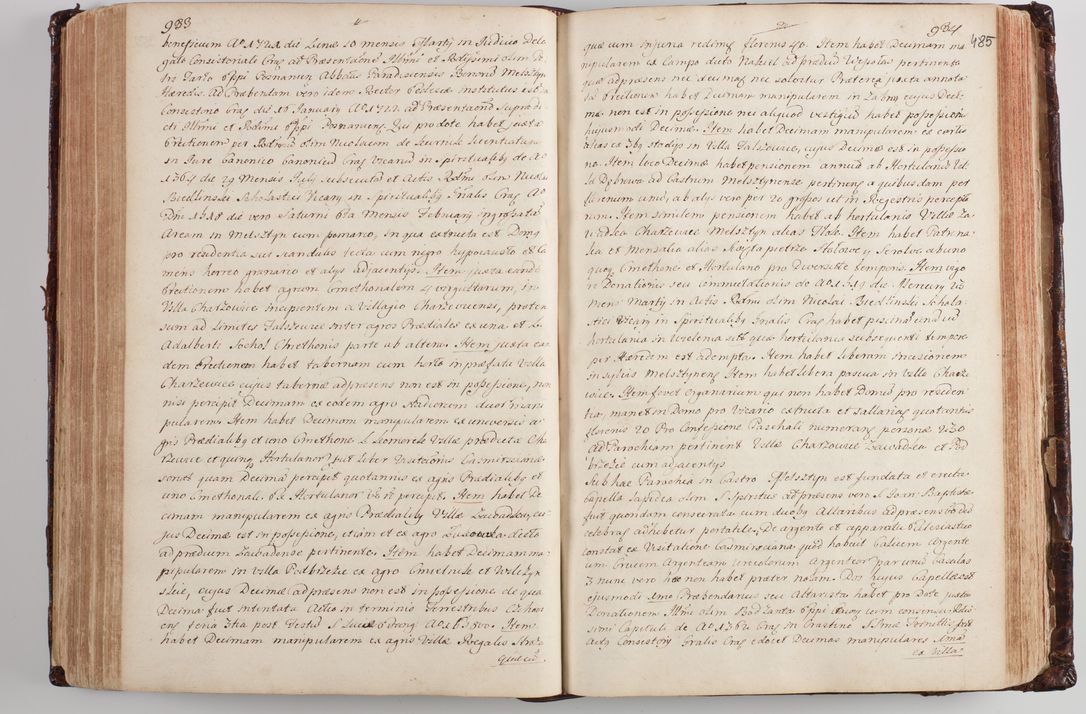 983
beneficium A° 1721 die Lunæ 10 mensis Martij in Judicio Dele
gato Consistoriali Crac: ad Præsentationē Illmi et Rndissimi olim Pe
tri Tarło Eppi Posnanien Abbatis Paradisiensis Bonorū Melsztyn
Hæredis. Ad Præbendam vero idem Rector Ecclesiæ institutus est co
Consestrio Crac die 16 January A° 1722 ad Præsentationē Supradi
cti Illmi et Rndmi Eppi Posnaniens. Qui pro dote habet juxta
Erectionem per Rndmū olim Nicolaum de
in Jure Canonico Canonicū Crac Vicariū in spiritualibȝ de A°
1364 die 29 Mensis July subsecutā et Actis Rdmi olim Nicolai
Biedlinski Scholastici Vicary in Spiritualibȝ Gnalis Crac A°
Dni 1548 die vero Saturni 6ta Mensis February ingrossatā
Aream in Melsztyn cum pomario, in qua extructa est Domȝ
pro residentia sui scandulis tecta cum nigro hypocausto et Ca
mens horreo granario et alijs adjacentijs. Item juxta eandē
Erectionem habet agrum Cmethonalem 4 cingularum, in
Villa Charzowice incipientem a Villagio Charzewensi, proten
sum ad limites Falszowice inter agros Prædiales ex una et L
Adalberti Sochol Cmethonis parte ab altera. Item juxta ean
dem Erectionem habet tabernam cum horto in præfata Villa
Charzewice cujus tabernæ ad præsens non est in possessione, non
nisi percipit Decimam ex eodem agro
pularem. Item habet Decimam manipularem ex universis a
gris Prædialibȝ et uno Cmethone L Komorek Villæ prædictæ Cha
rzewice et quinqȝ Hortulanorȝ juxt liber Visitationis Casimirsciana
sonat quam Decimā percipit quotannis ex agris Prædialibȝ et
uno Cmethonali. ex Hortulanor 16 nō percipit. Item habet De
cimam manipularem ex agris Prædialibȝ Villæ Zawadka, cu
jus Decimæ est in possessione, etiam et ex agro dicto
ad prædium Zawadense pertinente. Item habet Decimam ma
nipularem in Villa Podbrzezie ex agro Cmietnisle et Wolczyn
skie, cujus Decimæ ad præsens non est in possessione de qua
Decima fuit intentata Actio in terminis Terrestribus Czchovi
ens feria 3tia post Festū S Luciæ A° 1580. Item
habet Decimam manipularem ex agris Villæ Regalis
quæ cū
984
485
quæ cum injuria redimȝ florenis 40. Item habet Decimam ma
nipularem ex Campo dicto Nakiel ad prædiū Wesolow pertinente
quæ ad præsens nec decimaȝ nec solvitur Præterea juxta annota
tā Erectionem habet Decimam manipularem in Łabny cujus Deci
mæ non est in possessione nec aliquod vestigiū habet possessionis
hujusmodi Decimæ. Item habet Decimam manipularem ex certis
alias ex 3by stodiyo in Villa Falszowice, cujus Decimæ est in possessio
ne. Item loco Decimæ habet pensionem annuā ab Hortulanis Vil
læ Dębrowa ad Castrum Melsztynense pertinenȝ a quibusdam per
florenum unū, ab alijs vero per 20 grossos ut in Registris percepta
rum. Item similem pensionem habet ab hortulanis Villæ Za
wadka Charzewice Melsztyn alias Flak. Item habet Petrina
lia et Mensalia alias Swięto pietrze Stołowe, Senalve ab uno
quoqȝ Cmethone et Hortulano pro diversitate temporis. Item vigo
re Donationis seu commutationis de A° 1549 die Mercury
Mens: Martij in Actis Rdmi olim Nicolai Biedlinski Schola
stici Vicary in Spiritualibȝ Gnalis Crac habet piscinā unā cū
hortulania in Wielenia sitā quæ hortulania subsequenti tempore
per Hæredem est adempta. Item habet liberam incisionem
in sylvis Melsztynens Item habet libera pascua in Villa Charze
wice. Item fovet organarium qui non habet Domū pro residen
tia, manet in Domo pro Vicario extructa et sallarias quotannis
florenis 20 Pro Confessione Paschali numerans personas 730
Ad Parochiam pertinent Villæ Charzowice Zawadka et Pod
brzezie cum adjacentijs
Sub hac Parochia in Castro Melsztyn est fundata et erecta
Capella lapidea olim S Spiritus ad præsens vero S Joan: Baptistæ
fuit quondam consecrata cum duobȝ Altaribus ad præsens vo dū
celebraȝ adhibetur portatile. De argento et apparatu Ecclesiastico
constat ex Visitatione Casimirsciana quod habuit Calicem argente
um Crucem Argenteam Urceolorum Argenteor par unū Casulas
3 nunc vero hæc non habet præter nolam. Dnȝ hujus Capellæ est
ejusmodi Smo Præbendarius seu Altarista habet pro Dote juxta
Donationem Illmi olim Bodzanta Eppi Cracoȝ cum consensu Rndis
simi Capituli de A° 1362 Crac in Crastino S Smæ fortulli
Actȝ Consistory Gnalis Crac edocet Decimas manipulares Smā
ex Villa